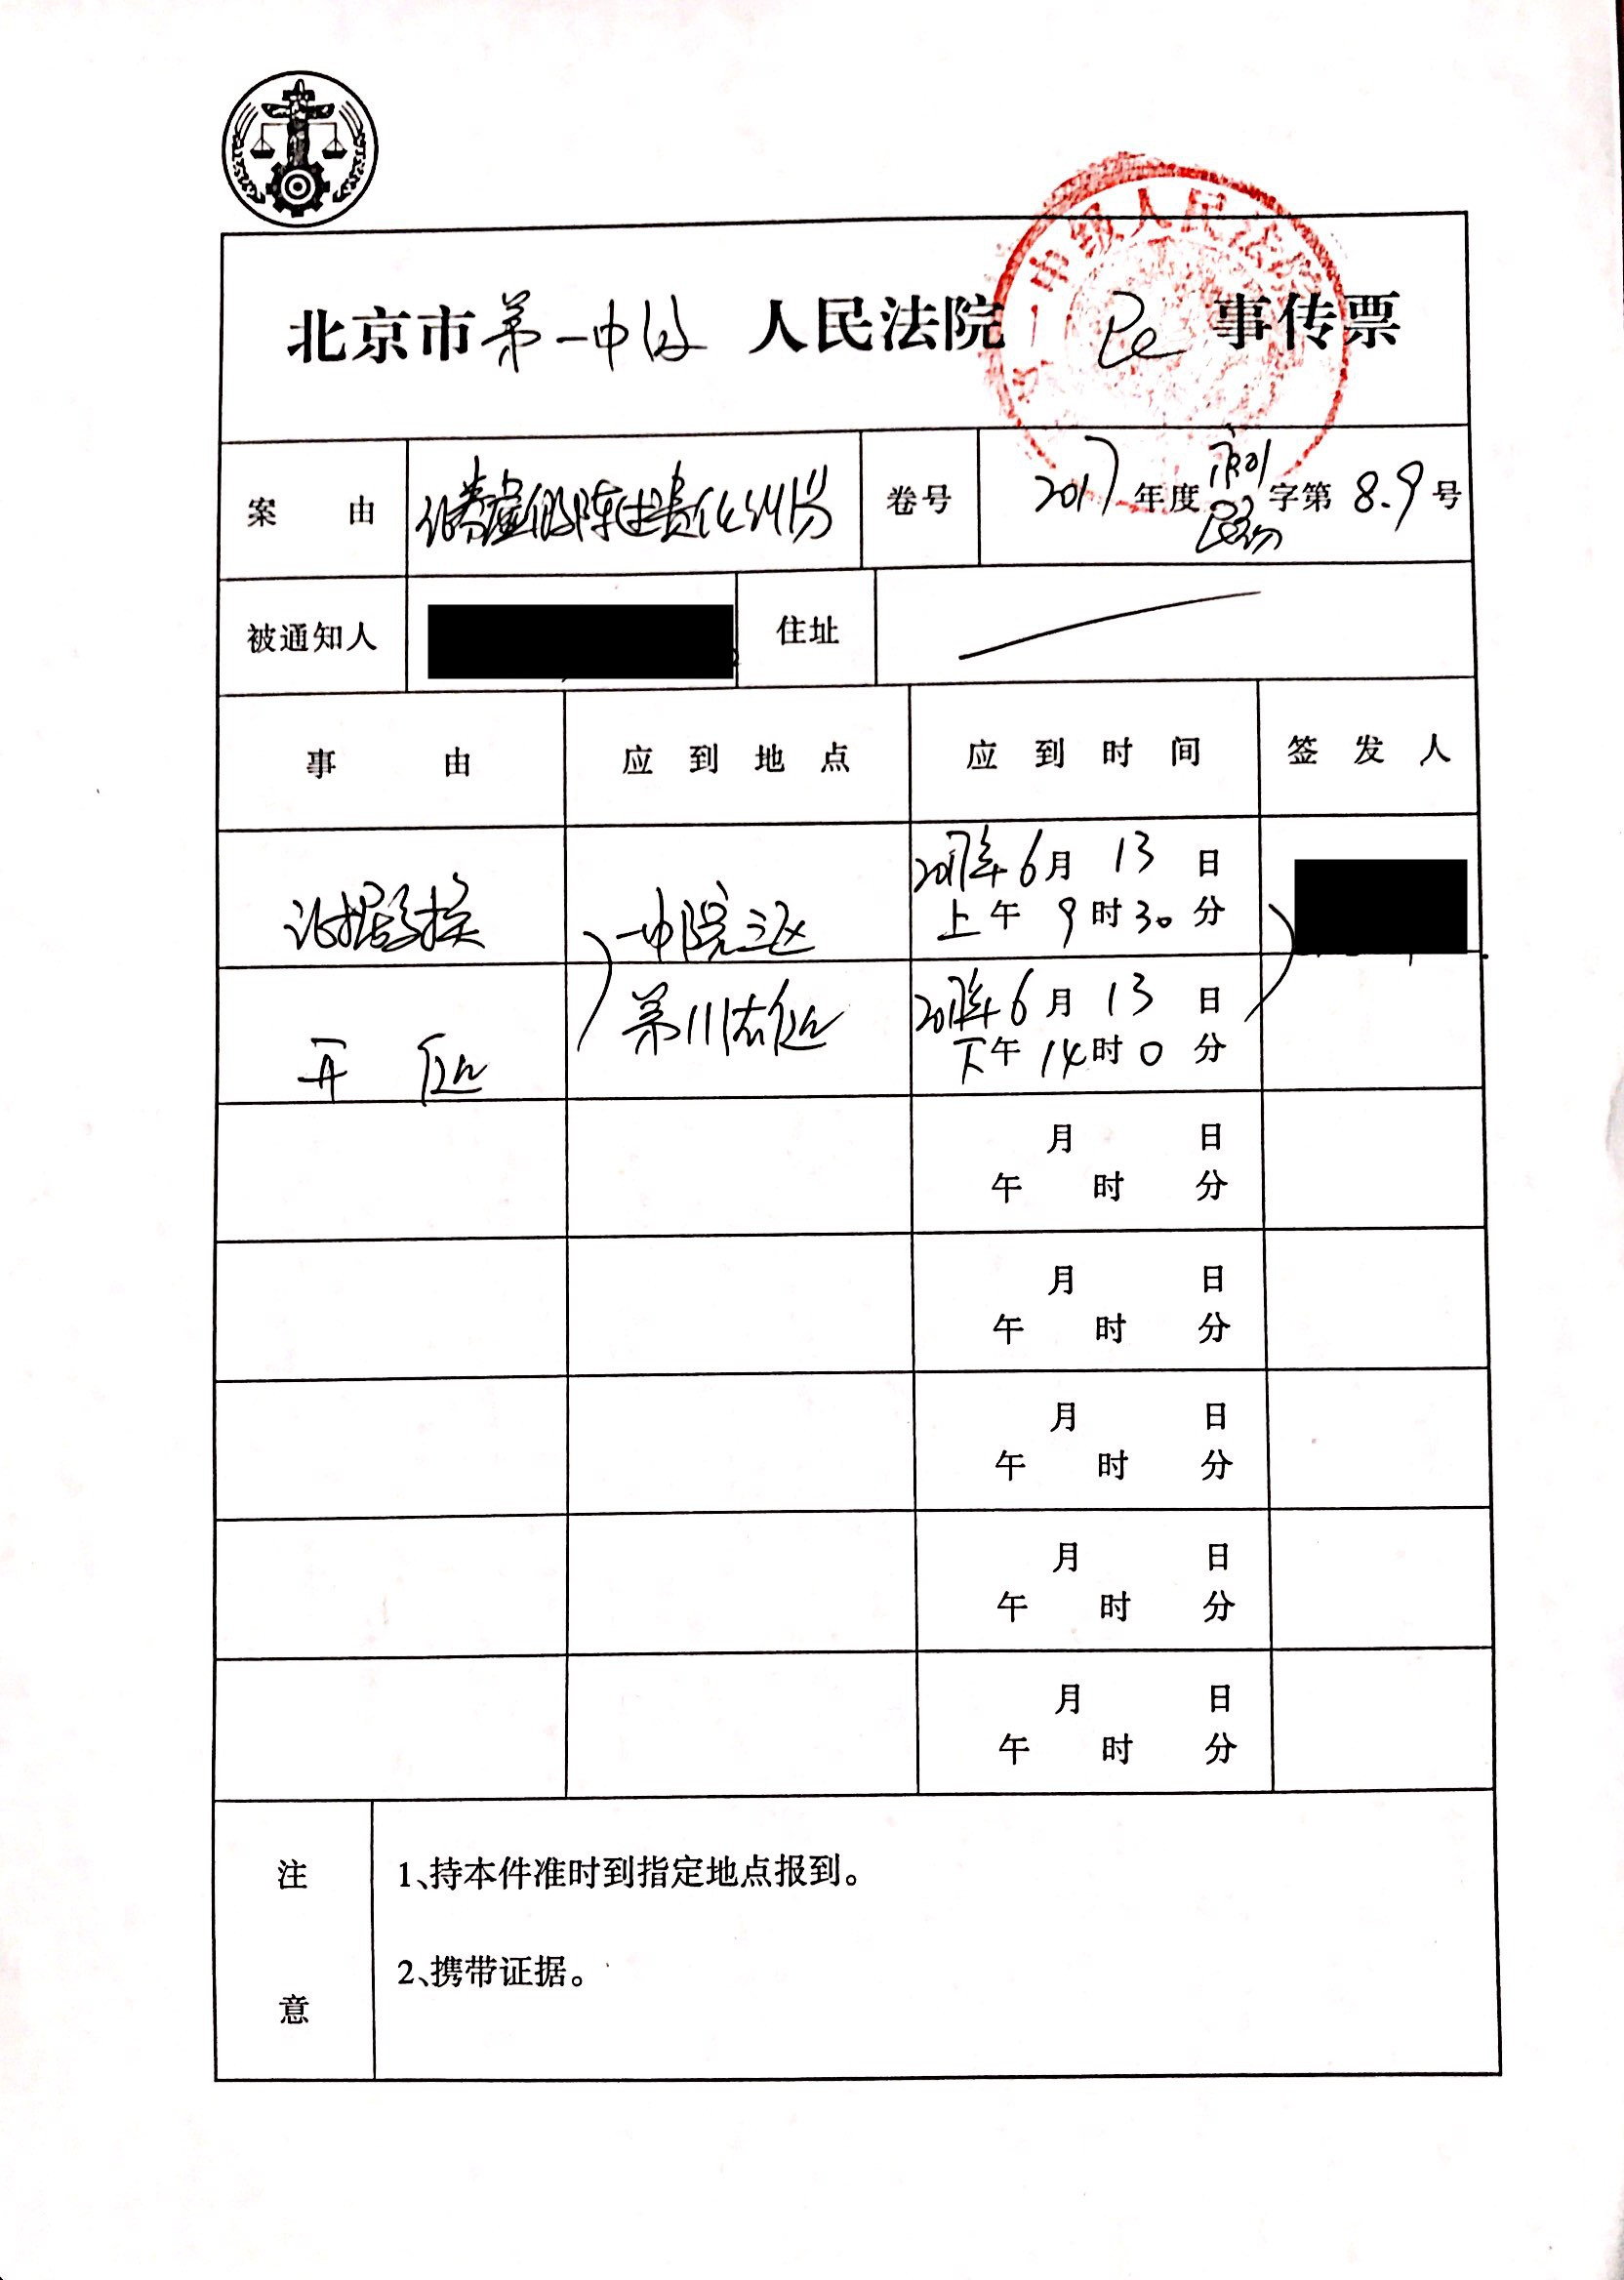 北京市第一中级人民法院 民事传票
一中级人民法院
案由 证券虚假陈述责任纠纷 卷号 2017年度京01民初字第8、9号
被通知人 住址
事由 应到地点 应到时间 签发人
证据交换 一中院主区 2017年6月13日
上午9时30分
开庭 第川法庭 2017年6月13日
下午14时0分
月 日
午 时 分
月 日
午 时 分
月 日
午 时 分
月 日
午 时 分
月 日
午 时 分
注意
1、持本件准时到指定地点报到。
2、携带证据。